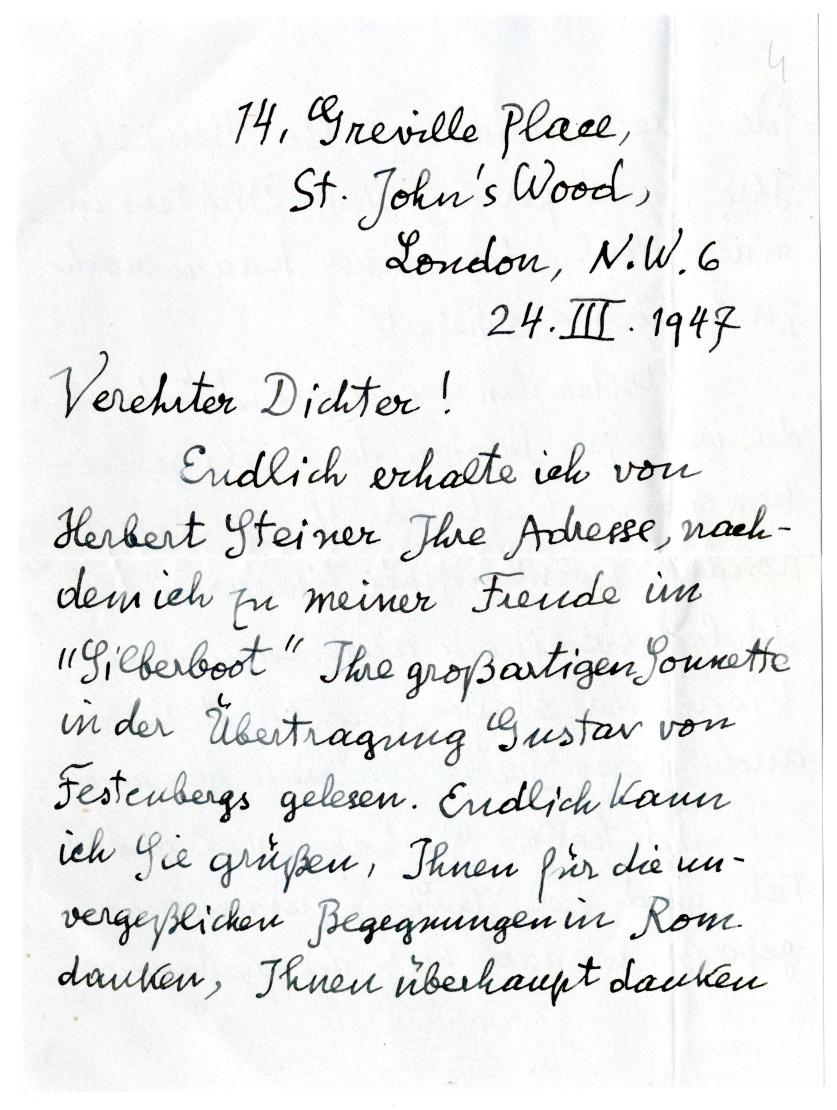 4
14, Greville Place,
St. John's Wood,
London, N.W. 6
24. III. 1947
Verehrter Dichter!
Endlich erhalte ich von
Herbert Steiner Ihre Adresse, nach-
dem ich zu meiner Freude im
"Silberboot" Ihre großartigen Sonnette
in der Übertragung Gustav von
Festenbergs gelesen. Endlich kann
ich Sie grüßen, Ihnen für die un-
vergeßlichen Begegnungen in Rom
danken, Ihnen überhaupt danken